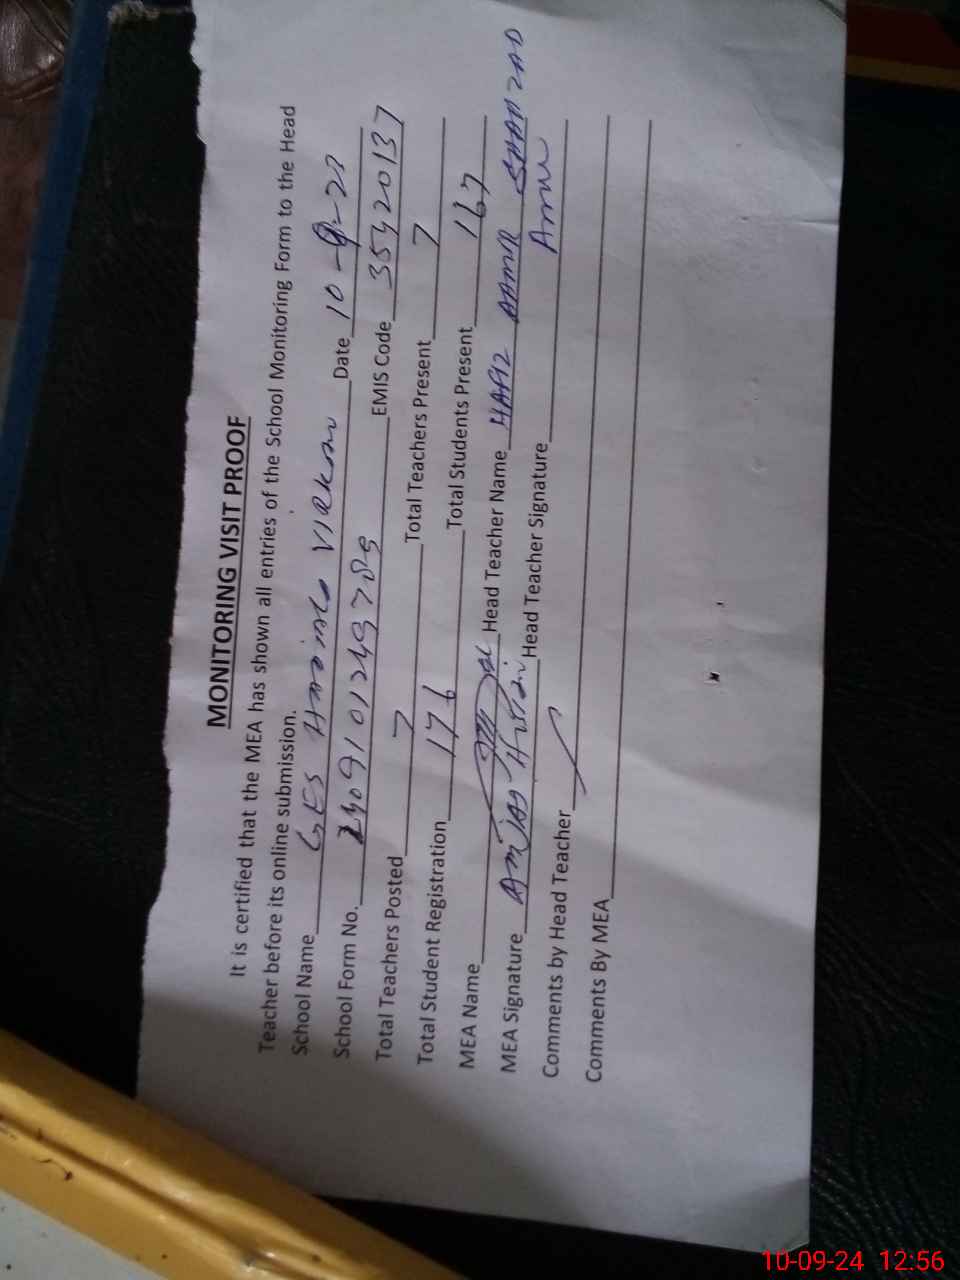 MONITORING VISIT PROOF
It is certified that the MEA has shown all entries of the School Monitoring Form to the Head
Teacher before its online submission.
School Name GES VIRKAN Date 10-9-2?
School Form No. EMIS Code 35420137
Total Teachers Posted 7 Total Teachers Present 7
Total Student Registration 176 Total Students Present 167
MEA Name Head Teacher Name HAFIZ AAMIR SHAHZAD
MEA Signature Amjad Hussain Head Teacher Signature Amir
Comments by Head Teacher
Comments By MEA
10-09-24 12:56